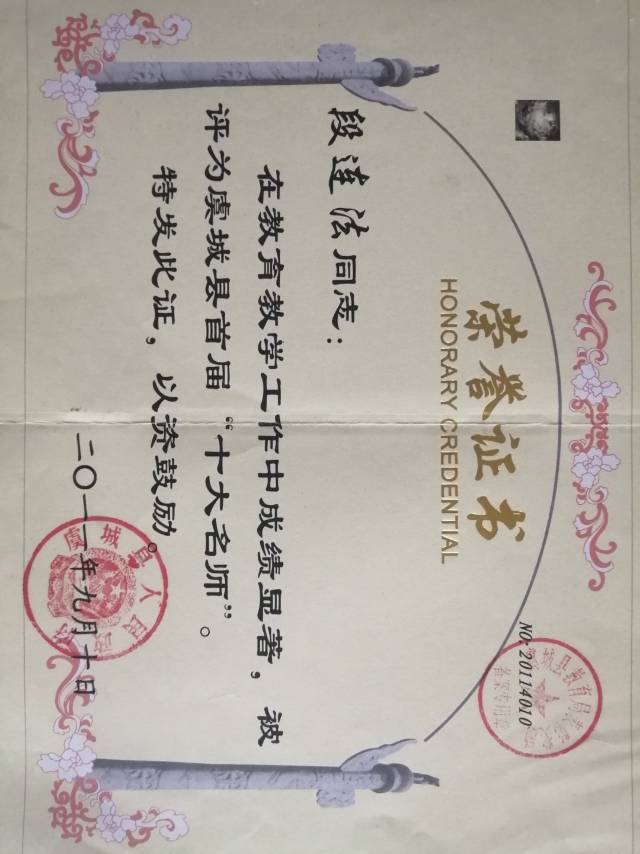 荣誉证书
HONORARY CREDENTIAL
NO: 20114010
段连法同志：
在教育教学工作中成绩显著，被
评为虞城县首届“十大名师”。
特发此证，以资鼓励。
二〇一一年九月十日
虞城县人民政府
城县教育局
备案专用章